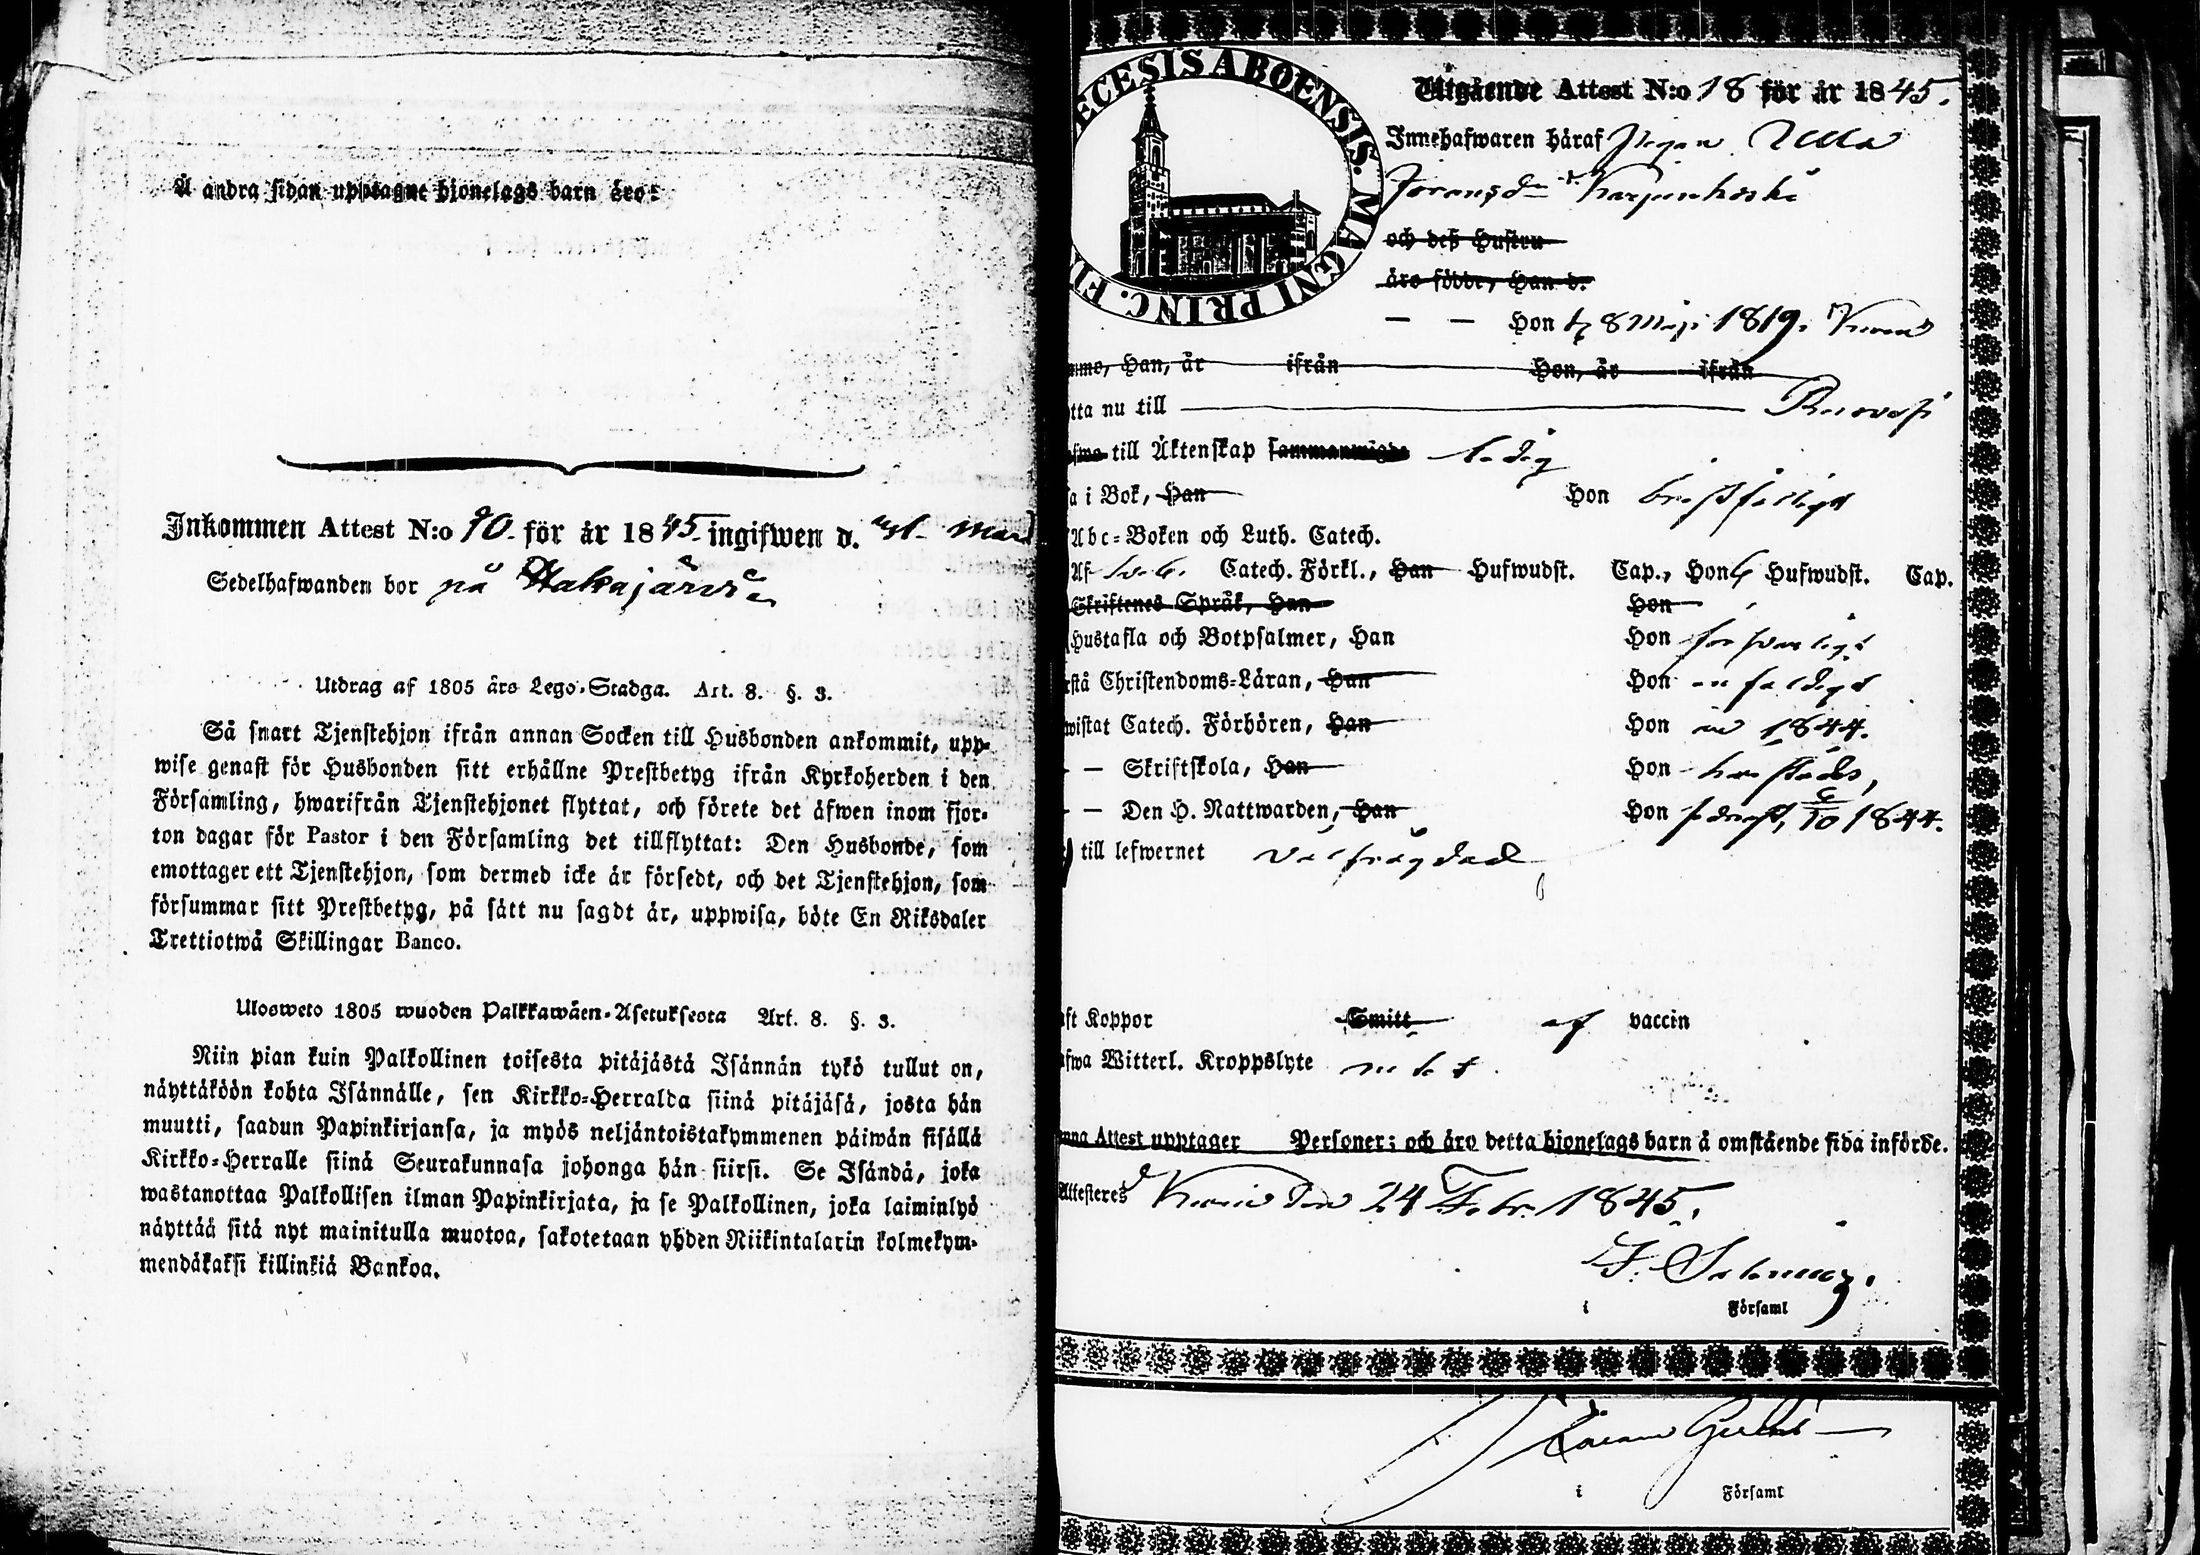 Å andra sidan upptagne hjonelags barn äro:
Inkommen Attest N:o 90. för år 1845. ingifwen d.
Sedelhafwanden bor på Hakajärvi
Utdrag af 1805 års Lego-Stadga. Art. 8. §. 3.
Så snart Tjenstehjon ifrån annan Socken till Husbonden ankommit, upp-
wise genast för Husbonden sitt erhållne Prestbetyg ifrån Kyrkoherden i den
Församling, hwarifrån Tjenstehjonet flyttat, och förete det äfwen inom fjor-
ton dagar för Pastor i den Församling det tillflyttat: Den Husbonde, som
emottager ett Tjenstehjon, som dermed icke är försedt, och det Tjenstehjon, som
försummar sitt Prestbetyg, på sätt nu sagdt är, uppwisa, böte En Riksdaler
Trettiotwå Skillingar Banco.
Ulosweto 1805 wuoden Palkkawäen-Asetuksesta Art. 8. §. 3.
Niin pian kuin Palkollinen toisesta pitäjästä Isännän tykö tullut on,
näyttäköön kohta Isännälle, sen Kirkko-Herralda siinä pitäjäsä, josta hän
muutti, saadun Papinkirjansa, ja myös neljäntoistakymmenen päiwän sisällä
Kirkko-Herralle siinä Seurakunnasa johonga hän siirsi. Se Isändä, joka
wastanottaa Palkollisen ilman Papinkirjata, ja se Palkollinen, joka laiminlyö
näyttää sitä nyt mainitulla muotoa, sakotetaan yhden Riikintalarin kolmekym-
mendäkaksi killinkiä Bankoa.
ECESIS ABOENSIS. MAGNI PRINC. FI
Utgående Attest N:o 18 för år 1845.
Innehafwaren häraf Pigan Ulla
och dess Hustru
äro födde, Han d.
— — Hon d. 8 Maji 1819.
Han, år ifrån Hon, år ifrån
nu till Ruovesi
till Äktenskap sammanwigde ledig
i Bok, Han Hon
Abc-Boken och Luth. Catech.
Af Catech. Förkl., Han Hufwudst. Cap., Hon 6 Hufwudst. Cap.
Skriftenes Språk, Han Hon
Hustafla och Botpsalmer, Han Hon förswarligt
Christendoms-Läran, Han Hon enfaldigt
Catech. Förhören, Han Hon 1844.
— Skriftskola, Han Hon
— Den H. Nattwarden, Han Hon sednast, 6/10 1844.
till lefwernet välfrägdad
Koppor Smitt af vaccin
Witterl. Kroppslyte intet
Attest upptager Personer; och äro detta hjonelags barn å omstående sida införde.
Attesteres 24 Febr. 1845.
i Församl
i Församl